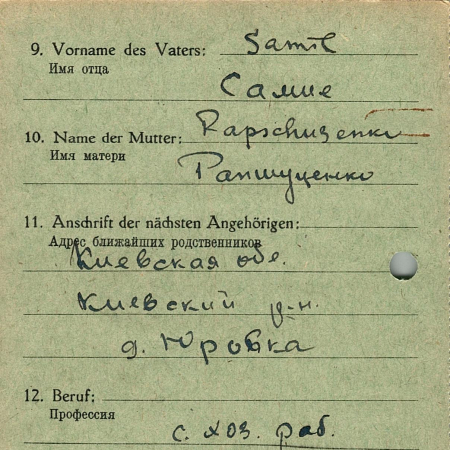 9. Vorname des Vaters: Samil
Имя отца
Самие
10. Name der Mutter: Rapschuzenko
Имя матери
Рапшуценко
11. Anschrift der nächsten Angehörigen:
Адрес ближайших родственников
Киевская обл.
Киевский р-н.
д. Юровка
12. Beruf:
Профессия
с. хоз. раб.